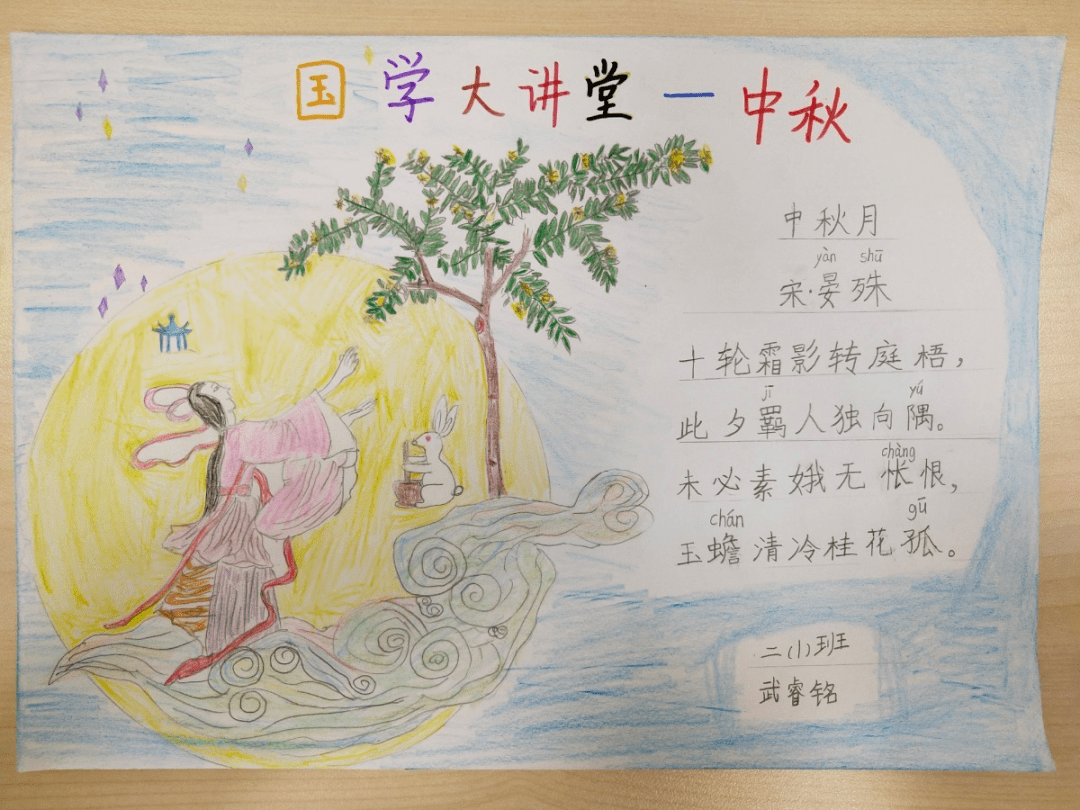 国学大讲堂一中秋
中秋月
yàn shū
宋·晏殊
十轮霜影转庭梧，
jī yú
此夕羁人独向隅。
chàng
未必素娥无怅恨，
chán gū
玉蟾清冷桂花孤。
二(1)班
武睿铭